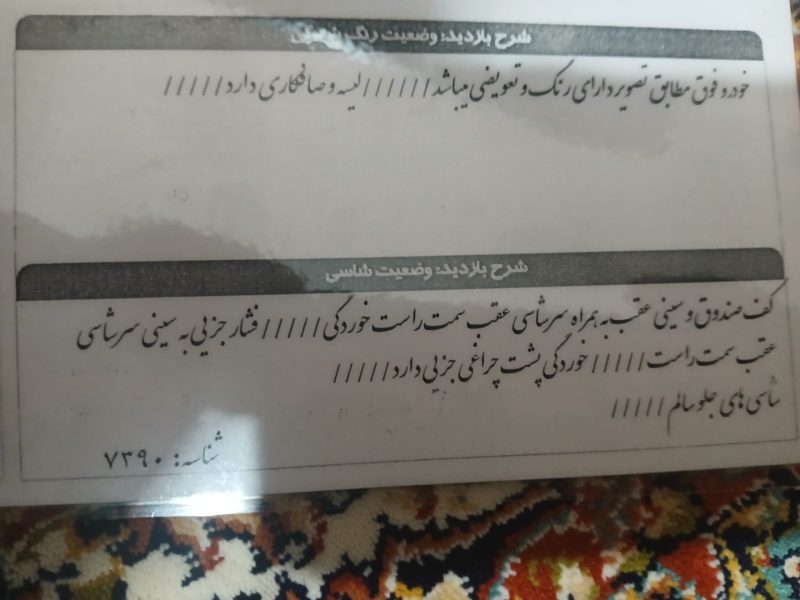 شرح بازدید: وضعیت رنگ
خودرو فوق مطابق تصویر دارای رنگ و تعویضی میباشد////// لیسه و صافکاری دارد/////
شرح بازدید: وضعیت شاسی
کف صندوق و سینی عقب به همراه سرشاسی عقب سمت راست خوردگی///// فشار جزیی به سینی سرشاسی
عقب سمت راست///// خوردگی پشت چراغی جزیی دارد/////
شاسی های جلو سالم/////
شناسه: ۷۳۹۰